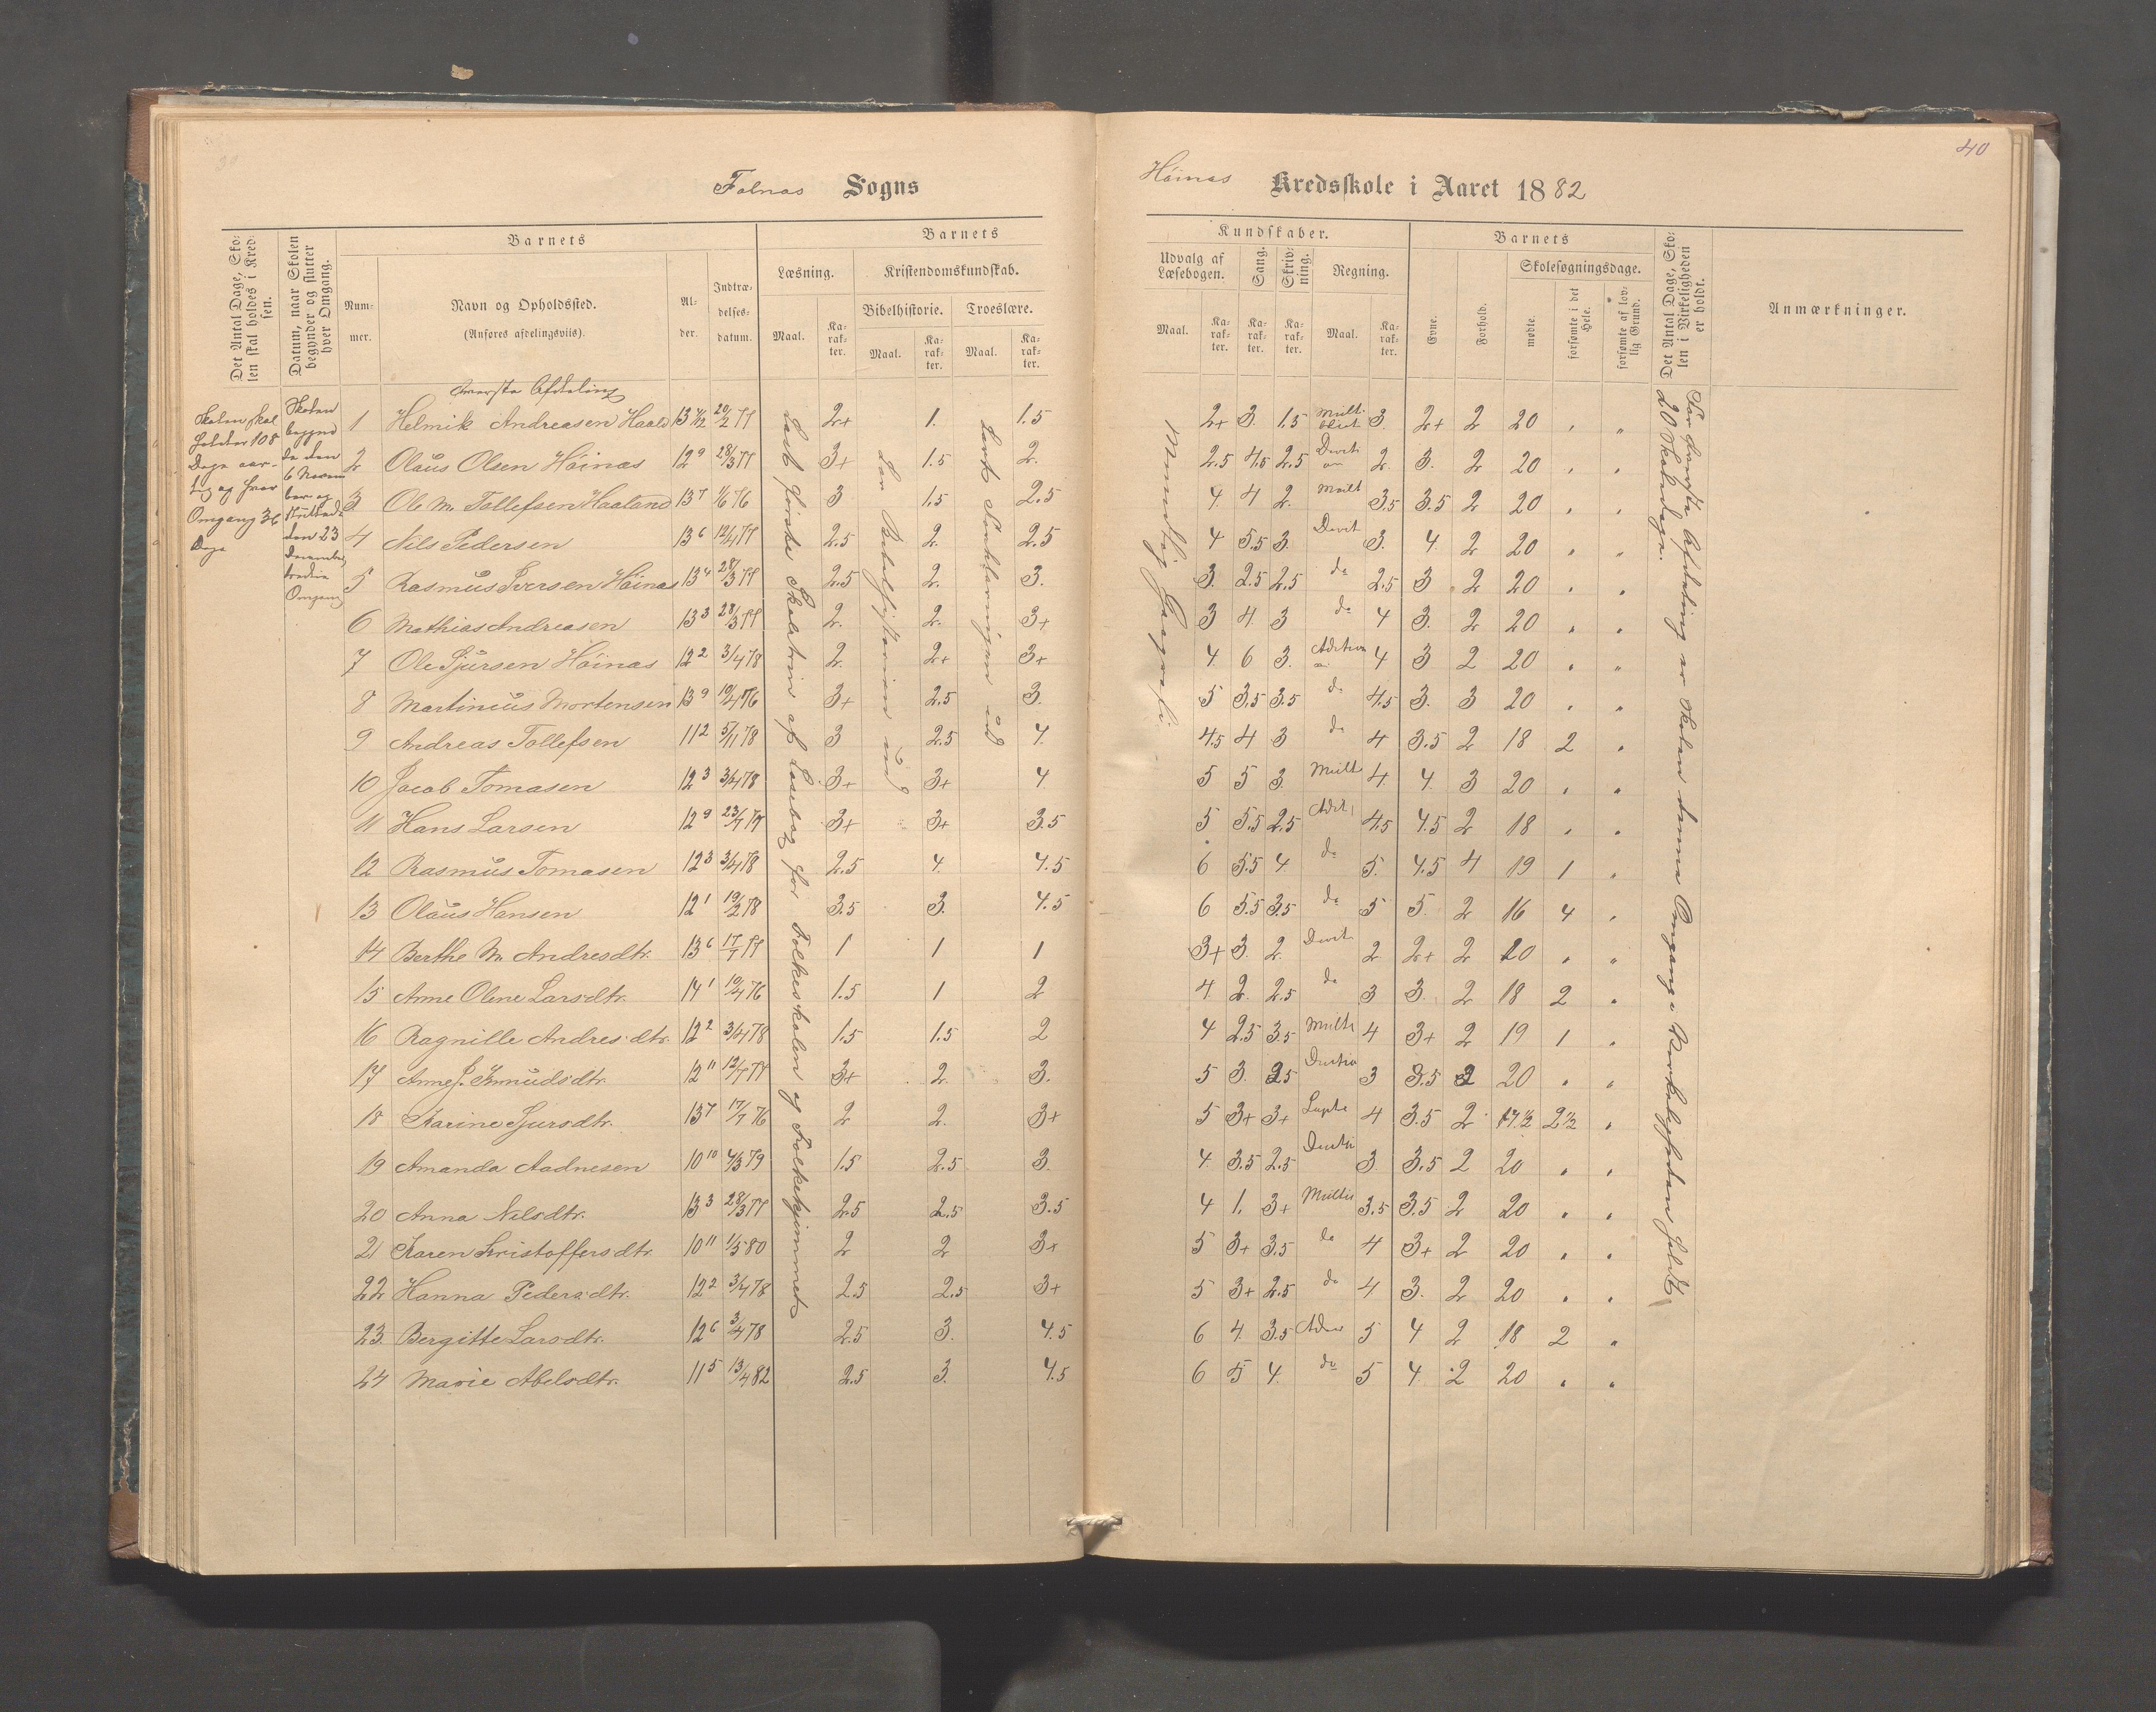 Falnæs Sogns
Høinæs Kredsskole i Aaret 1882
40
Det Antal Dage, Skolen skal holdes i Kredsen.
Datum, naar Skolen begynder og slutter hver Omgang.
Barnets
Nummer.
Navn og Opholdssted.
(Anføres afdelingsviis).
Alder.
Indtrædelsesdatum.
Barnets
Læsning.
Kristendomskundskab.
Bibelhistorie.
Troeslære.
Maal.
Karakter.
Maal.
Karakter.
Maal.
Karakter.
Kundskaber.
Udvalg af Læsebogen.
Sang.
Skrivning.
Regning.
Maal.
Karakter.
Karakter.
Karakter.
Maal.
Karakter.
Barnets
Evne.
Forhold.
Skolesøgningsdage.
mødte.
forsømte i det Hele.
forsømte af lovlig Grund.
Det Antal Dage, Skolen i Virkeligheden er holdt.
Anmærkninger.
Skolen skal holdes 108 Dage aarlig og hver Omgang 36 Dage
Skolen begyndte den 6 November og sluttede den 23 December tredie Omgang
øverste Afdeling
Læst første Skoletrin af Læsebog for Folkeskolen og Folkehjemmet
Lær Bibelhistorien ud
Lært Forklaringen ud
Mundtlig Geografi
For øverste Afdeling er Skolen denne Omgang i Virkeligheden holdt 20 Skoledage.
1 Helmik Andreasen Haaland 13 1/2 20/2 77 2+ 1. 1.5 2+ 3. 1.5 Multi 3. 2+ 2 20 " "
2 Olaus Olsen Höinæs 12 9 28/3 77 3+ 1.5 2. 2.5 4.5 2.5 2 3. 2 20 " "
3 Ole M. Tollefsen Haaland 13 7 1/6 76 3 1.5 2.5 4. 4 2. Mult 3.5 3.5 2 20 " "
4 Nils Pedersen 13 6 12/4 77 2.5 2. 2.5 4 5.5 3. 3. 4. 2 20 " "
5 Rasmus Iversen Höinæs 13 4 28/3 77 2.5 2. 3. 3. 2.5 2.5 do 2.5 3 2 20 " "
6 Mathias Andreasen 13 3 28/3 77 2. 2. 3+ 3 4. 3 do 4 3. 2 20 " "
7 Ole Sjursen Höinæs 12 2 3/4 78 2. 2+ 3+ 4. 6 3. 4 3 2 20 " "
8 Martinius Mortensen 13 9 19/4 76 3+ 2.5 3. 5 3.5 3.5 do 4.5 3. 3 20 " "
9 Andreas Tollefsen 11 2 5/11 78 3 2.5 4. 4.5 4 3 do 4 3.5 2 18 2 "
10 Jacob Tomasen 12 3 3/4 78 3+ 3+ 4 5 5 3. Mult 4 4. 3 20 " "
11 Hans Larsen 12 9 23/7 79 3+ 3+ 3.5 5 5.5 2.5 4.5 4.5 2 18 " "
12 Rasmus Tomasen 12 3 3/4 78 2.5 4. 4.5 6 5.5 4. do 5. 4.5 4 19 1 "
13 Olaus Hansen 12 1 19/2 78 3.5 3. 4.5 6 5.5 3.5 do 5 5. 2 16 4 "
14 Berthe M. Andresdtr. 13 6 17/7 77 1 1 1 3+ 3. 2. 2 2+ 2 20 " "
15 Anne Oline Larsdtr. 14 1 19/4 76 1.5 1 2 4. 2. 2.5 do 3 3. 2 18 2 "
16 Ragnille Andresdtr. 12 2 3/4 78 1.5 1.5 2 4 2.5 3.5 Multi 4 3+ 2 19 1 "
17 Anne J. Knudsdtr. 12 11 12/7 77 3+ 2. 3. 5 3. 2.5 3 3.5 2 20 " "
18 Karine Sjursdtr. 13 7 17/7 76 2 2. 3+ 5 3+ 3+ 4 3.5 2 17 1/2 2 1/2 "
19 Amanda Aadnesen 10 10 4/3 79 1.5 2.5 3. 4. 3.5 2.5 3 3.5 2 20 " "
20 Anna Nilsdtr. 13 3 28/3 77 2.5 2.5 3.5 4 1. 3+ Multi 3.5 3.5 2 20 " "
21 Karen Kristoffersdtr. 10 11 1/5 80 2 2 3+ 5 3+ 3.5 do 4 3+ 2 20 " "
22 Hanna Pedersdtr. 12 2 3/4 78 2.5 2.5 3+ 5 3+ 2.5 do 4 3. 2 20 " "
23. Bergitte Larsdtr. 12 6 3/4 78 2.5 3. 4.5 6 4. 3.5 5 4 2 18 2 "
24 Marie Abelsdtr. 11 5 13/4 82 2.5 3. 4.5 6 5 4. do 5 4. 2 20 " "